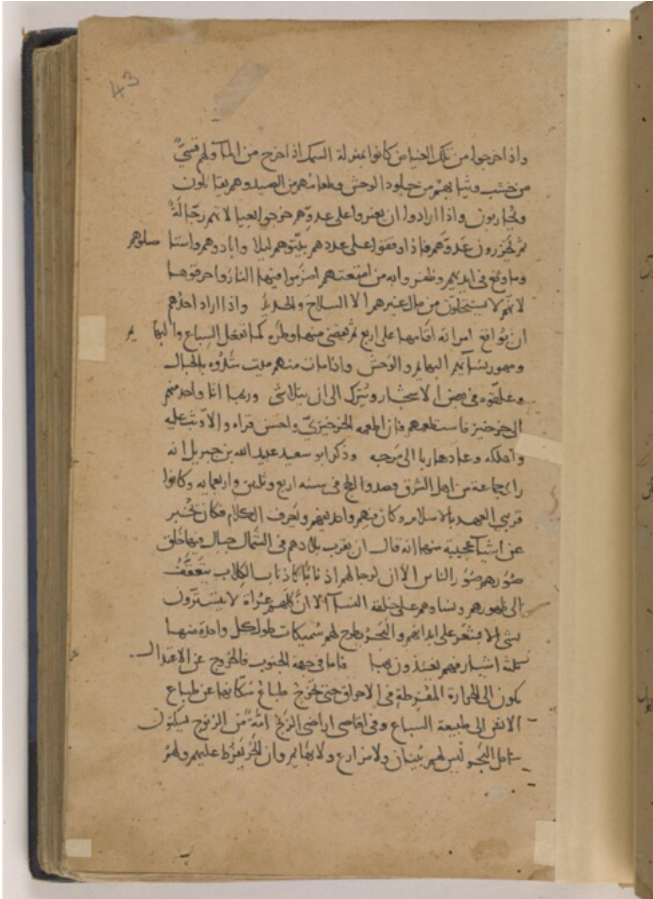 43
واذا خرجوا من تلك الغياض كانوا بمنزلة السمك اذا خرج من الماء ولهم قسيّ
من خشب وثيابهم من جلود الوحش وطعامهم من الصيد وهم يقاتلون
ويحاربون واذا ارادوا ان يغيروا على عدوهم خرجوا لانهم رجّالة
ثم يحزرون عدوّهم فاذا وقفوا على عددهم بيّتوهم ليلا وابادوهم واستاصلوهم
وما وقع فى ايديهم وظفروا به من امتعتهم اضرموا فيها النار واحرقوها
لانهم لا يستحلون من مال غيرهم الا السلاح والحديد واذا اراد احدهم
ان يواقع امراته اقامها على اربع ثم كما تفعل السباع والبهايم
ومهور نسائهم البهايم والوحش واذا مات منهم ميت شدّوه بالحبال
وعلقوه فى بعض الاشجار ويترك الى ان يتلاشى وربما اتا واحد منهم
الى خرخيز
واهلكه وعاد هاربا الى وذكر ابو سعيد عبد الله بن جبريل انه
راى جماعة من اهل الشرق قصدوا الحج فى سنه اربع وثلثين واربعمايه وكانوا
قريبى العهد بالاسلام وكان فيهم واحد يفهم ويعرف الكلام فكان يخبر
عن اشيآء عجيبة منها انه قال ان بقرب بلادهم فى الشمال جبال فيها خلق
صورهم صور الناس الا ان لرجالهم اذنابا كاذناب الكلاب
الى ظهورهم ونساوهم على خلقة النسآ الا ان كلهم عراة لا يتسترون
بشى لا شعر على ابدانهم والبحر يطرح لهم سميكات طول كل واحدة منها
ثلثة اشبار فهم يغتذون بها فاما فى جهة الجنوب فالخروج عن الاعتدال
يكون الى الحرارة المفرطة فى الاحراق حتى تخرج طباع سكانها عن طباع
الانس الى طبيعة السباع وفى اقاصى اراضى الزنج امّة من الزنوج يسكنون
ساحل البحر ليس لهم بنيان ولا مزارع ولا بهايم وان الحرّ يفرط عليهم ولهم